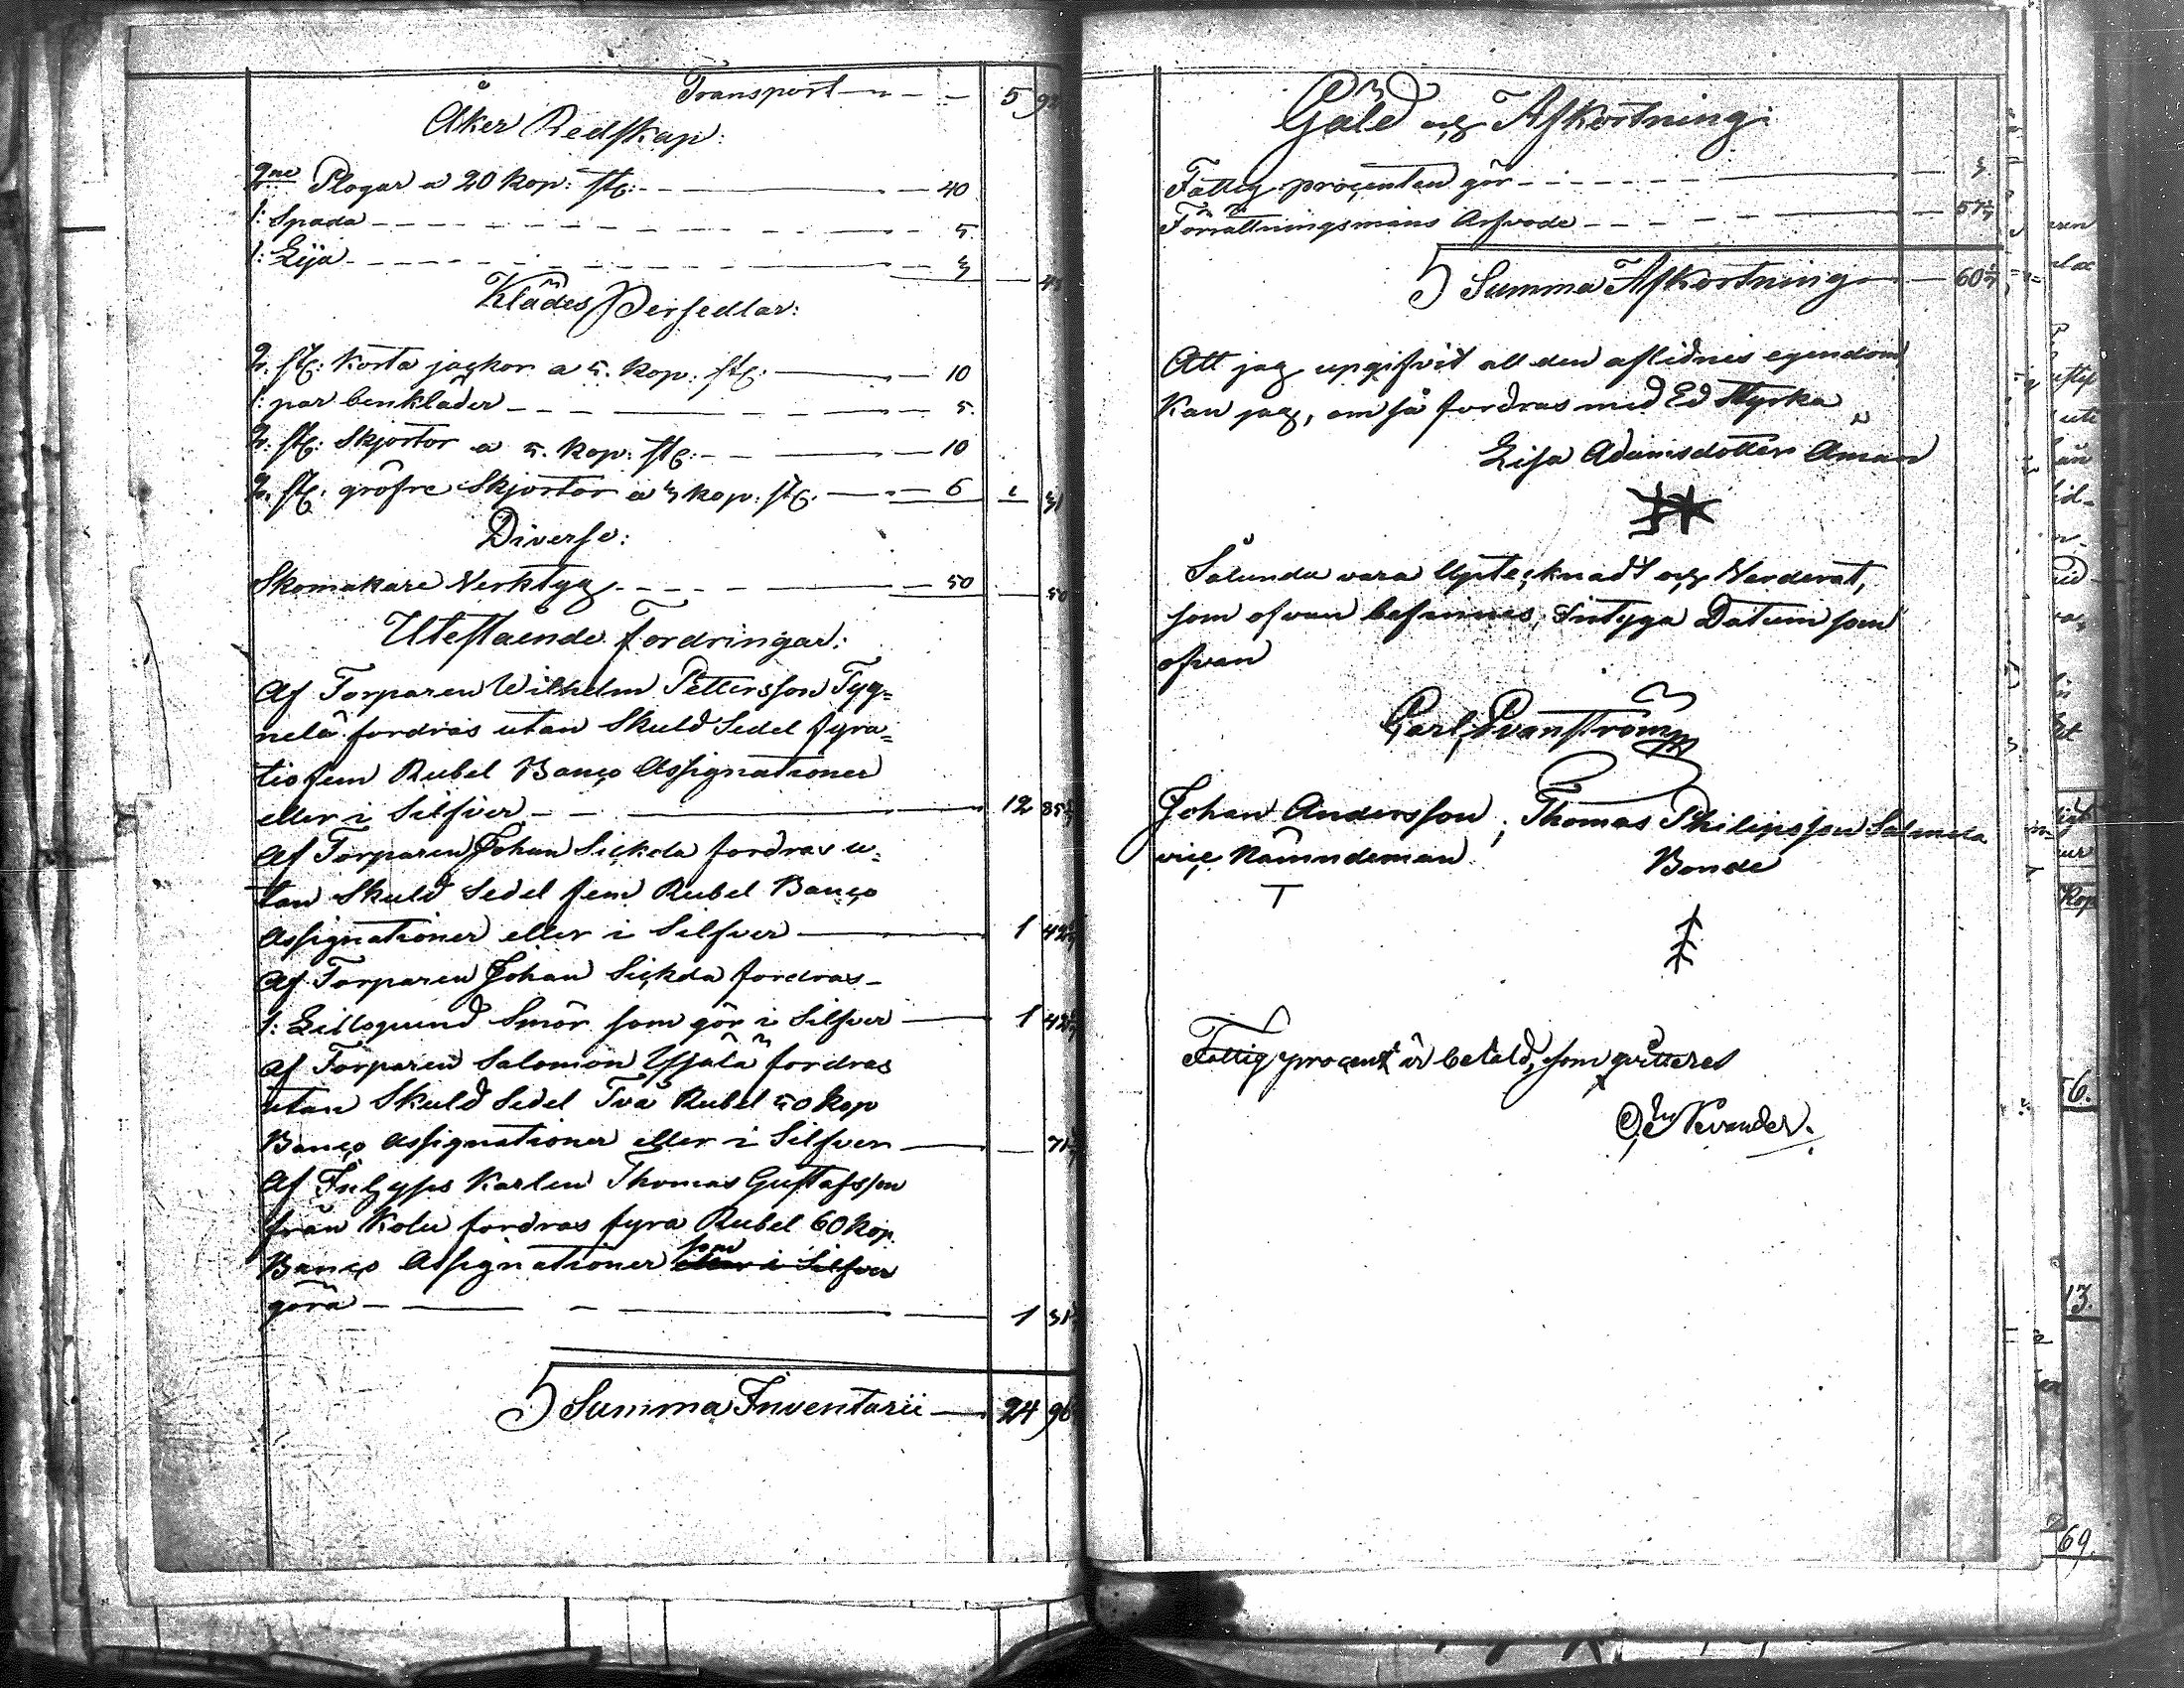 Transport 5 92
Åker Redskap:
2ne Plogar a 20 kop: st: 40
1: Spada 5.
1: Lija 3 48
Klädes Persedlar:
2. st: korta jackor a 5. kop: st: 10
1: par benkläder 5.
2. st: Skjortor a 5. kop: st: 10
2. st: gröfre Skjortor a 3 kop: st: 6 31
Diverse:
Skomakare Verktyg 50 50
Utestående fordringar:
Af Torparen Wilhelm Pettersson Tyy=
nelä fordras utan Skuld Sedel fyra=
tiofem Rubel Banco Assignationer
eller i Silfver 12 85 5/7
Af Torparen Johan Sickda fordras u=
tan Skuld Sedel fem Rubel Banco
Assignationer eller i Silfver 1 42 6/7
Af Torparen Johan Sickda fordras
1: Lisspund Smör som gör i Silfver 1 42 6/7
Af Torparen Salomon fordras
utan Skuld Sedel Två Rubel 50 kop
Banco Assignationer eller i Silfver 71 3/7
Af Inhyses Karlen Thomas Gustafsson
från Kolu fordras fyra Rubel 60 kop.
Banco Assignationer som eller i Silfver
göra 1 31
Summa Inventarii 24 96
Gäld och Afkortning:
Fattig procenten gör 3.
Förrättningsmäns Arfvode 57 1/7
Summa Afkortning 60 1/7
Att jag upgifvit all den aflidnes egendom
kan jag, om så fordras med Ed styrka
Lisa Adamsdotter Åman
Sålunda vara Uptecknadt och Värderat,
som ofvan befinnes, Intyga Datum som
ofvan
Carl Svanström
Johan Andersson, Thomas Philipsson Salmela
vice Nämndeman Bonde
T
Fattig procent är betald, som qvitteras
Nevander.